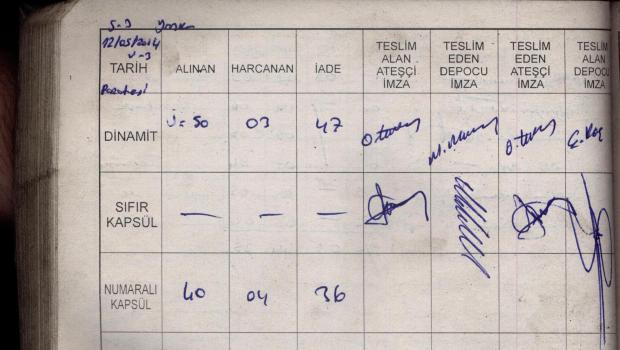 S-3
12/05/2014
TARİH
ALINAN
HARCANAN
İADE
TESLİM ALAN ATEŞÇİ İMZA
TESLİM EDEN DEPOCU İMZA
TESLİM EDEN ATEŞÇİ İMZA
TESLİM ALAN DEPOCU İMZA
DİNAMİT
50
03
47
SIFIR KAPSÜL
—
—
—
NUMARALI KAPSÜL
40
04
36